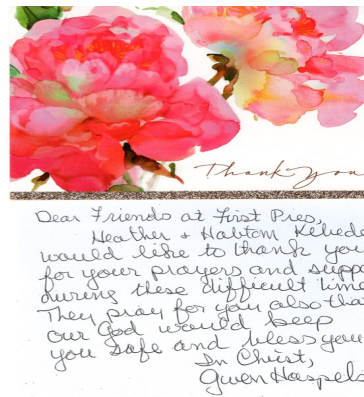 Thank you
Dear Friends at First Pres,
Heather & Habtom Kebede
would like to thank you
for your prayers and supp
during these difficult time
They pray for you also tha
our God would keep
you safe and bless you
In Christ,
Gwen Haspels